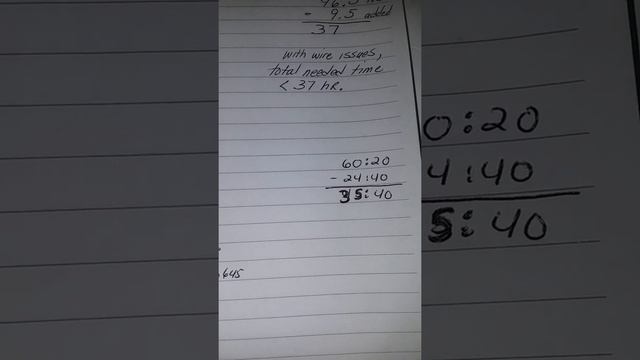 - 9.5 added
37
with wire issues,
total needed time
< 37 hr.
60:20
- 24:40
35:40
645
0:20
4:40
5:40